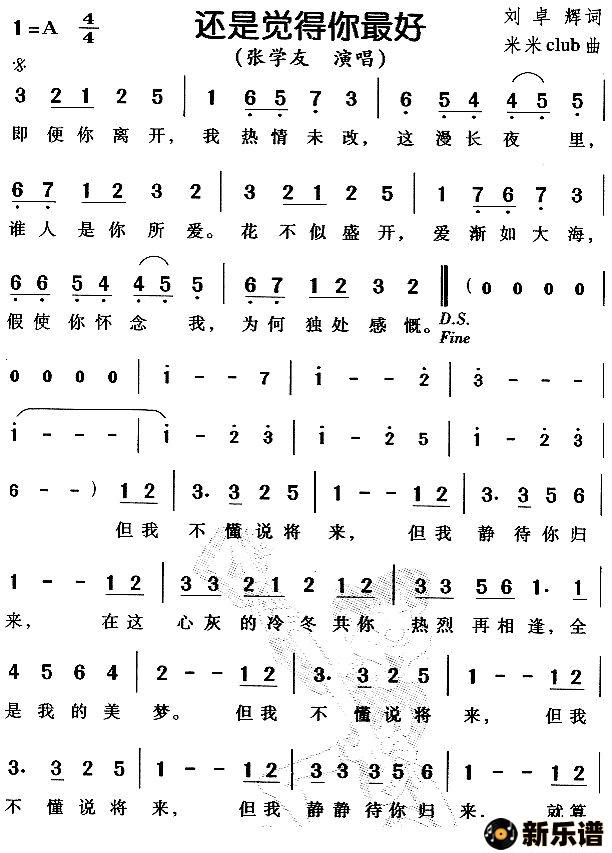 1=A 4/4 还是觉得你最好 刘卓辉词
(张学友 演唱) 米米club曲
3 2 1 2 5 | 1 6 5 7 3 | 6 5 4 4 5 5 |
即便你离开，我热情未改，这漫长夜里，
6 7 1 2 3 2 | 3 2 1 2 5 | 1 7 6 7 3 |
谁人是你所爱。花不似盛开，爱渐如大海，
6 6 5 4 4 5 5 | 6 7 1 2 3 2 ‖ (0 0 0 0 |
假使你怀念我，为何独处感慨。D.S.
Fine
0 0 0 0 | i - - 7 | i - - 2 | 3 - - - |
i - - - | i - 2 3 | i - 2 5 | i - 2 3 |
6 - -) 1 2 | 3. 3 2 5 | 1 - - 1 2 | 3. 3 5 6 |
但我不懂说将来，但我静待你归
1 - - 1 2 | 3 3 2 1 2 1 2 | 3 3 5 6 1. 1 |
来，在这心灰的冷冬共你热烈再相逢，全
4 5 6 4 | 2 - - 1 2 | 3. 3 2 5 | 1 - - 1 2 |
是我的美梦。但我不懂说将来，但我
3. 3 2 5 | 1 - - 1 2 | 3 3 3 5 6 | 1 - - 1 2 |
不懂说将来，但我静静待你归来．就算
新乐谱